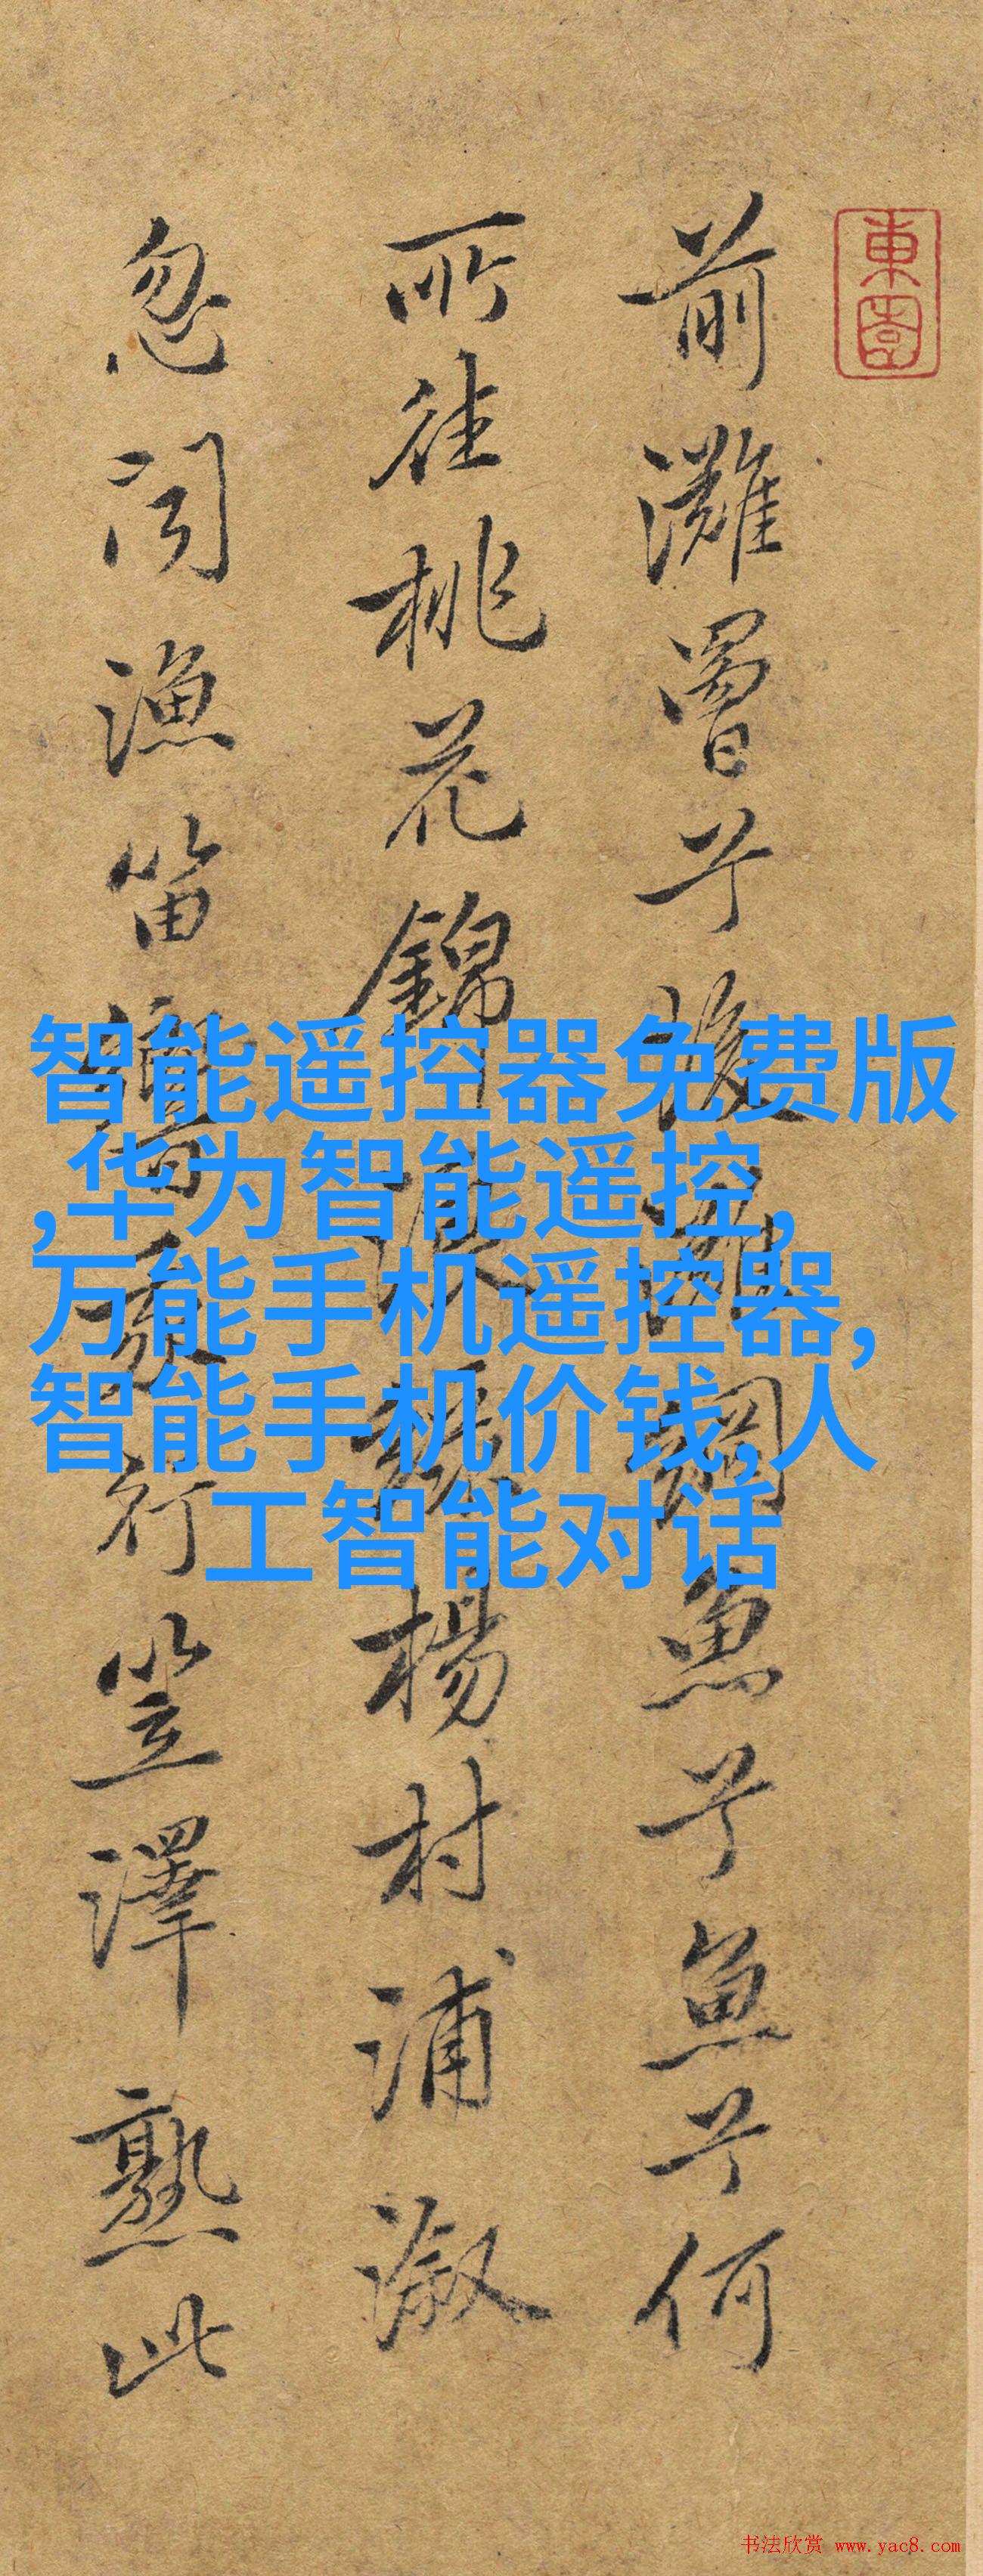 東園
前灘罾兮後灘網魚兮魚兮何
所往桃花錦浪綠楊村浦溆
忽闻漁笛響行笠澤熟此
智能遥控器免费版
,华为智能遥控,
万能手机遥控器,
智能手机价钱,人
工智能对话
书法欣赏 www.yac8.com